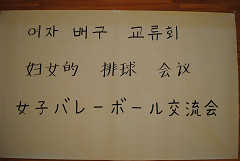 여자 배구 교류회
妇女的 排球 会议
女子バレーボール交流会